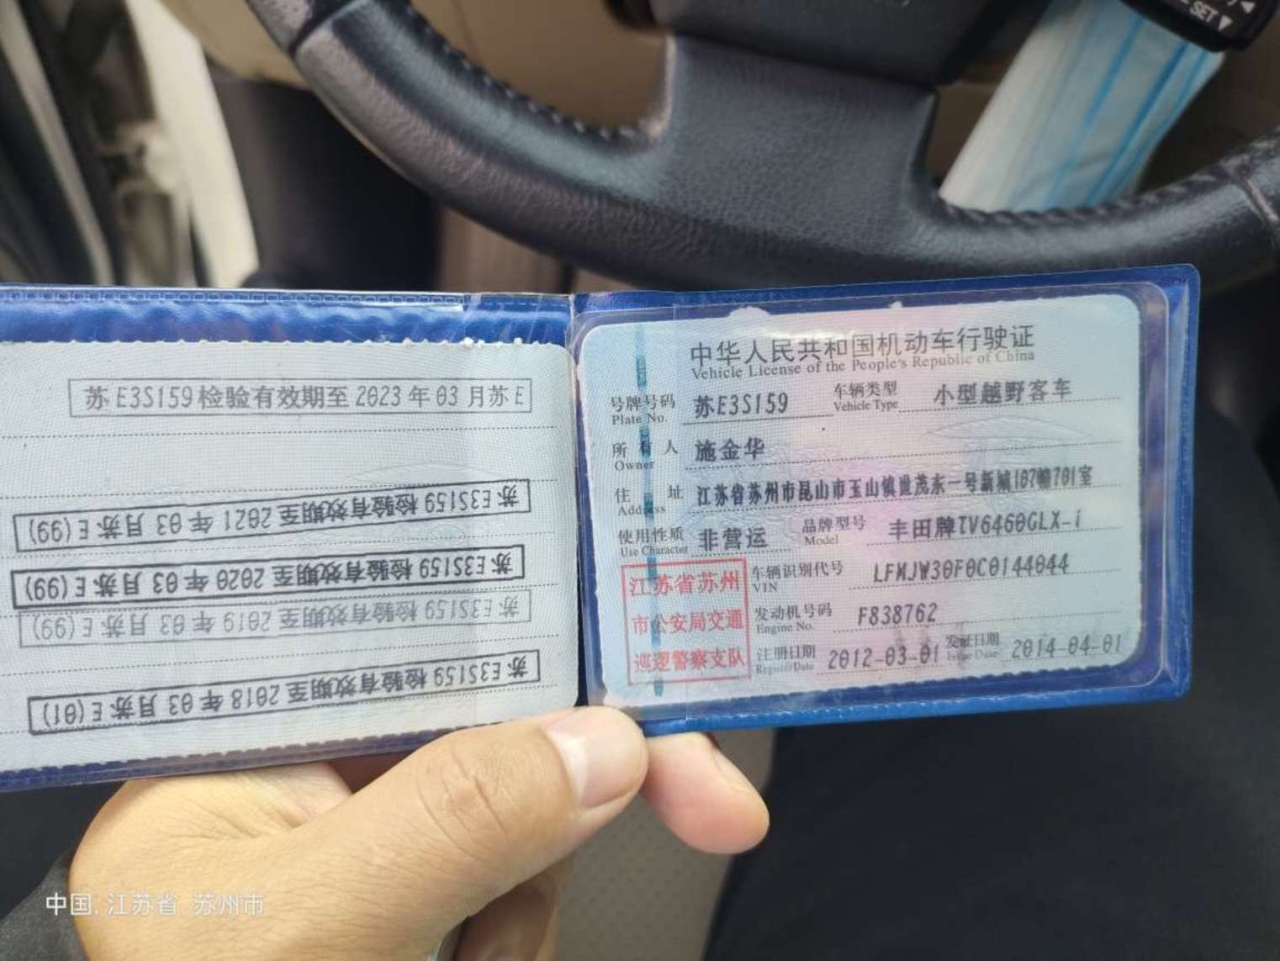 SET
苏E3S159检验有效期至2023年03月苏E
苏E3S159检验有效期至2021年03月苏E(99)
苏E3S159检验有效期至2020年03月苏E(99)
苏E3S159检验有效期至2019年03月苏E(99)
苏E3S159检验有效期至2018年03月苏E(01)
中华人民共和国机动车行驶证
Vehicle License of the People's Republic of China
号牌号码 苏E3S159 车辆类型 小型越野客车
Plate No. Vehicle Type
所有人 施金华
Owner
住址 江苏省苏州市昆山市玉山镇世茂东一号新城107幢701室
Address
使用性质 非营运 品牌型号 丰田牌TV6460GLX-i
Use Character Model
江苏省苏州
市公安局交通
巡逻警察支队
车辆识别代号 LFMJW30F0C0144044
VIN
发动机号码 F838762
Engine No.
注册日期 2012-03-01 发证日期 2014-04-01
Register Date Issue Date
中国, 江苏省 苏州市